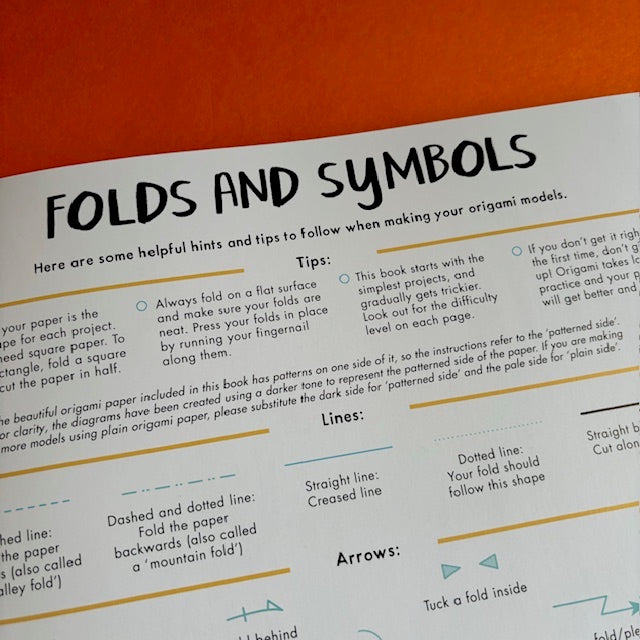 FOLDS AND SYMBOLS
Here are some helpful hints and tips to follow when making your origami models.
Tips:
your paper is the
for each project.
need square paper. To
fold a square
cut the paper in half.
Always fold on a flat surface
and make sure your folds are
neat. Press your folds in place
by running your fingernail
along them.
This book starts with the
simplest projects, and
gradually gets trickier.
Look out for the difficulty
level on each page.
If you don't get it
the first time, don't
up! Origami takes
practice and your
will get better and
beautiful origami paper included in this book has patterns on one side of it, so the instructions refer to the 'patterned side'.
or clarity, the diagrams have been created using a darker tone to represent the patterned side of the paper. If you are making
more models using plain origami paper, please substitute the dark side for 'patterned side' and the pale side for 'plain side'.
Lines:
line:
the paper
(also called
fold')
Dashed and dotted line:
Fold the paper
backwards (also called
a 'mountain fold')
Straight line:
Creased line
Dotted line:
Your fold should
follow this shape
Straight
Cut
Arrows:
behind
Tuck a fold inside